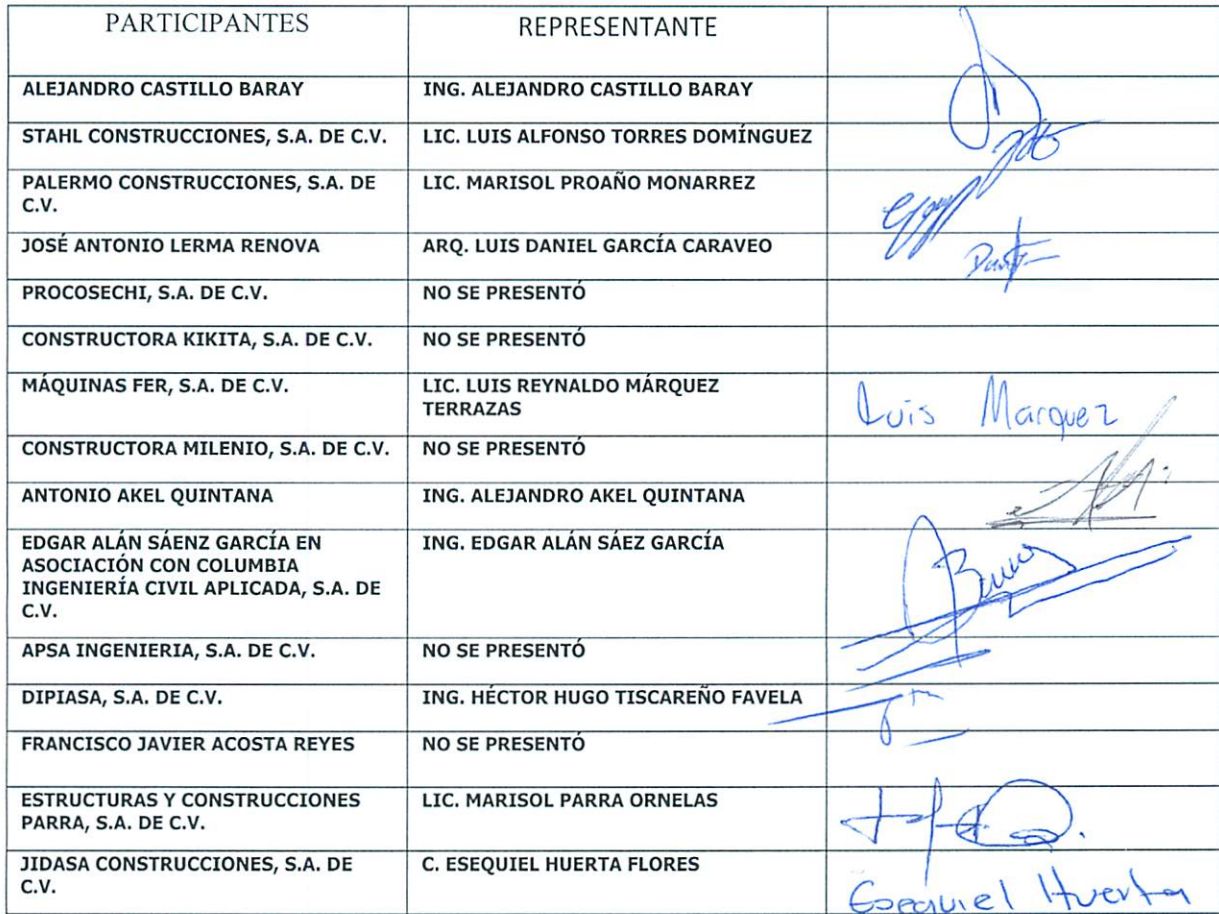 PARTICIPANTES REPRESENTANTE
ALEJANDRO CASTILLO BARAY ING. ALEJANDRO CASTILLO BARAY
STAHL CONSTRUCCIONES, S.A. DE C.V. LIC. LUIS ALFONSO TORRES DOMÍNGUEZ
PALERMO CONSTRUCCIONES, S.A. DE LIC. MARISOL PROAÑO MONARREZ
C.V.
JOSÉ ANTONIO LERMA RENOVA ARQ. LUIS DANIEL GARCÍA CARAVEO
PROCOSECHI, S.A. DE C.V. NO SE PRESENTÓ
CONSTRUCTORA KIKITA, S.A. DE C.V. NO SE PRESENTÓ
MÁQUINAS FER, S.A. DE C.V. LIC. LUIS REYNALDO MÁRQUEZ
TERRAZAS Luis Marquez
CONSTRUCTORA MILENIO, S.A. DE C.V. NO SE PRESENTÓ
ANTONIO AKEL QUINTANA ING. ALEJANDRO AKEL QUINTANA
EDGAR ALÁN SÁENZ GARCÍA EN ING. EDGAR ALÁN SÁEZ GARCÍA
ASOCIACIÓN CON COLUMBIA
INGENIERÍA CIVIL APLICADA, S.A. DE
C.V.
APSA INGENIERIA, S.A. DE C.V. NO SE PRESENTÓ
DIPIASA, S.A. DE C.V. ING. HÉCTOR HUGO TISCAREÑO FAVELA
FRANCISCO JAVIER ACOSTA REYES NO SE PRESENTÓ
ESTRUCTURAS Y CONSTRUCCIONES LIC. MARISOL PARRA ORNELAS
PARRA, S.A. DE C.V.
JIDASA CONSTRUCCIONES, S.A. DE C. ESEQUIEL HUERTA FLORES
C.V. Esequiel Huerta